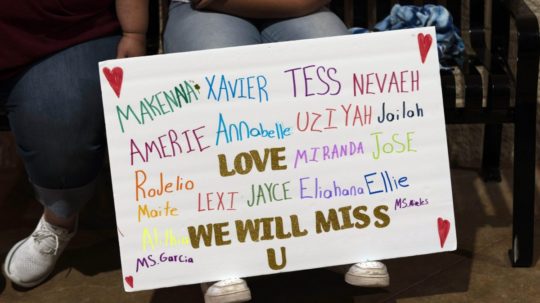 MAKENNA XAVIER TESS NEVAEH
AMERIE Annabelle UZIYAH Jailah
LOVE MIRANDA JOSE
Rojelio LEXI JAYCE Eliahana Ellie
Maite
WE WILL MISS
U
MS. Garcia